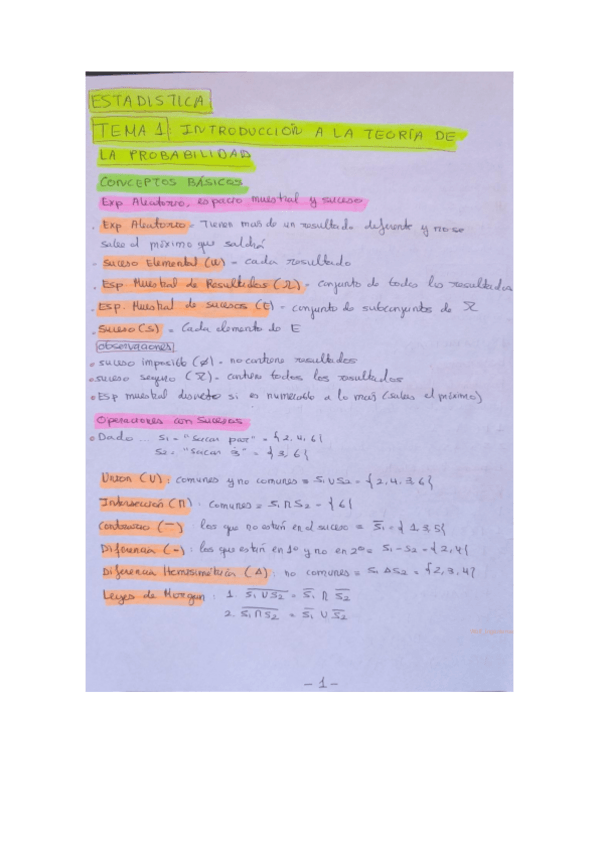 ESTADISTICA
TEMA 1: INTRODUCCIÓN A LA TEORÍA DE
LA PROBABILIDAD
CONCEPTOS BÁSICOS
Exp Aleatorio, espacio muestral y suceso
. Exp Aleatorio = Tienen mas de un resultado diferente y no se
sabe el próximo que saldrá
. Suceso Elemental (ω) = cada resultado
. Esp. Muestral de Resultados (Ω) = conjunto de todos los resultados
. Esp. Muestral de sucesos (E) = conjunto de subconjuntos de Ω
. Suceso (Si) = Cada elemento de E
observaciones
• suceso imposible (∅) = no contiene resultados
• suceso seguro (Ω) = contiene todos los resultados
• Esp muestral discreto si es numerable a lo mas (sabes el próximo)
Operaciones con Sucesos
• Dado ... S1 = "Sacar par" = {2, 4, 6}
S2 = "Sacar 3̇" = {3, 6}
Union (U): comunes y no comunes = S1 U S2 = {2, 4, 3, 6}
Intersección (∩): comunes = S1 ∩ S2 = {6}
Contrario (—) los que no están en el suceso = S̅1 = {1, 3, 5}
Diferencia (-): los que están en 1º y no en 2º = S1 - S2 = {2, 4}
Diferencia Hemisimétrica (Δ): no comunes = S1 Δ S2 = {2, 3, 4}
Leyes de Morgan: 1. S̅1̅ ̅U̅ ̅S̅2̅ = S̅1 ∩ S̅2
2. S̅1̅ ̅∩̅ ̅S̅2̅ = S̅1 U S̅2
- 1 -